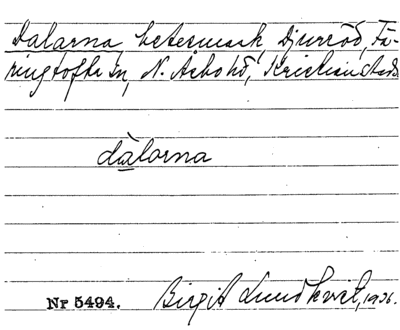 Dalarna, betesmark, Djurröd, Fä-
ringtofta sn, N. Åsbo hd, Kristianstads
dàlarna
Nr 5494. Birgit Lundkvist, 1936.